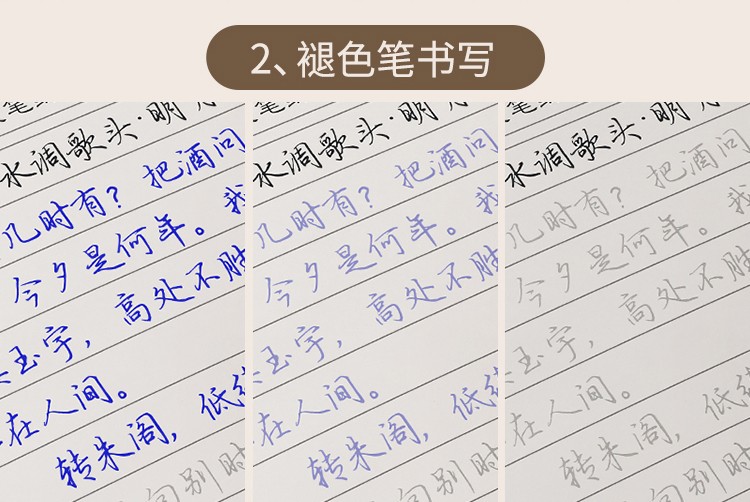 2、褪色笔书写
水调歌头·明
几时有？把酒问
今夕是何年。我
高处不胜
玉宇，
在人间。
转朱阁，低绮
向别时
水调歌头·明
几时有？把酒问
今夕是何年。我
高处不胜
玉宇，
在人间。
转朱阁，低绮
向别时
水调歌头·明
几时有？把酒问
今夕是何年。我
高处不胜
玉宇，
在人间。
转朱阁，低绮
向别时